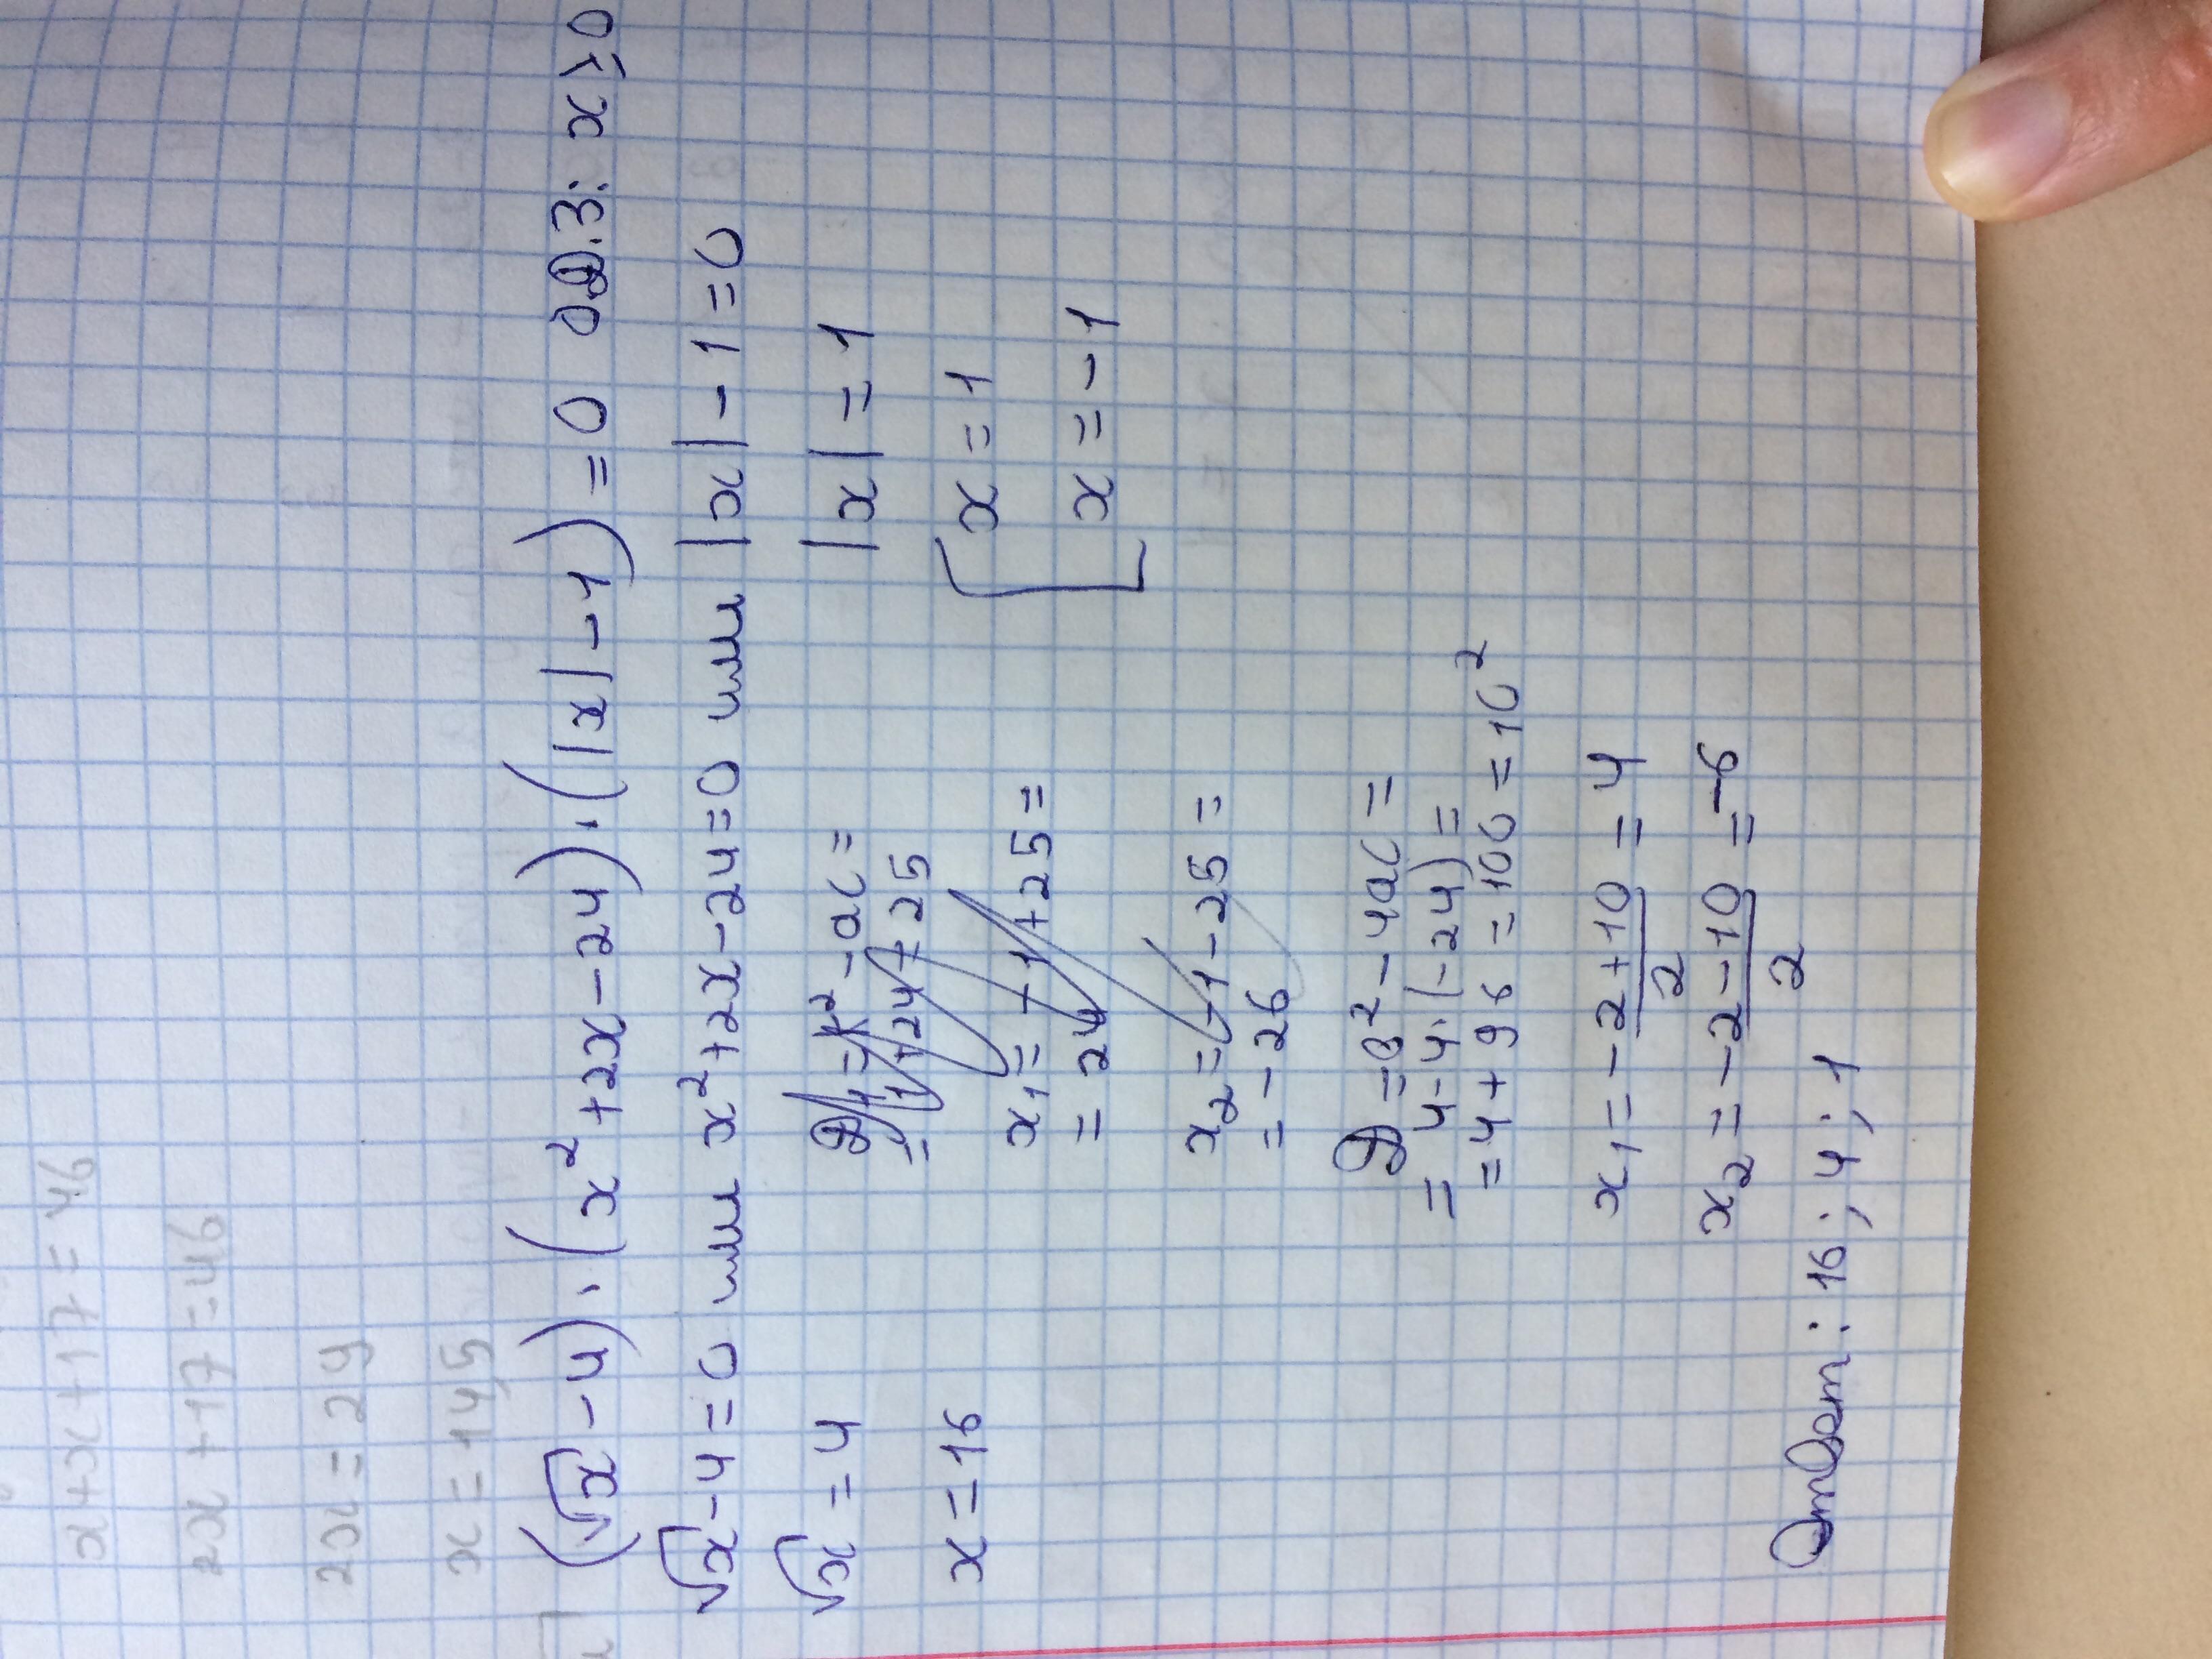 x+x+17=46
2x+17=46
2x=29
x=14,5
(√x-4)·(x²+2x-24)·(|x|-1)=0 ОДЗ: x≥0
√x-4=0 или x²+2x-24=0 или |x|-1=0
√x=4 D/4=k²-ac= |x|=1
=1+24=25
x=16 x₁=-1+25= [x=1
=24 x=-1
x₂=-1-25=
=-26
D=в²-4ac=
=4-4·(-24)=
=4+96=100=10²
x₁=-2+10/2=4
x₂=-2-10/2=-6
Ответ: 16; 4; 1